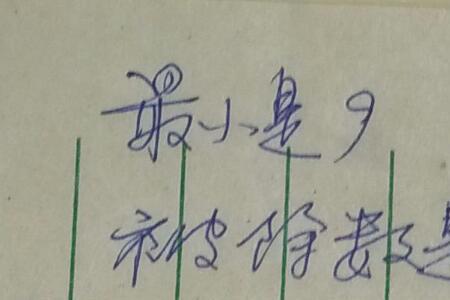 最小是9
被除数是